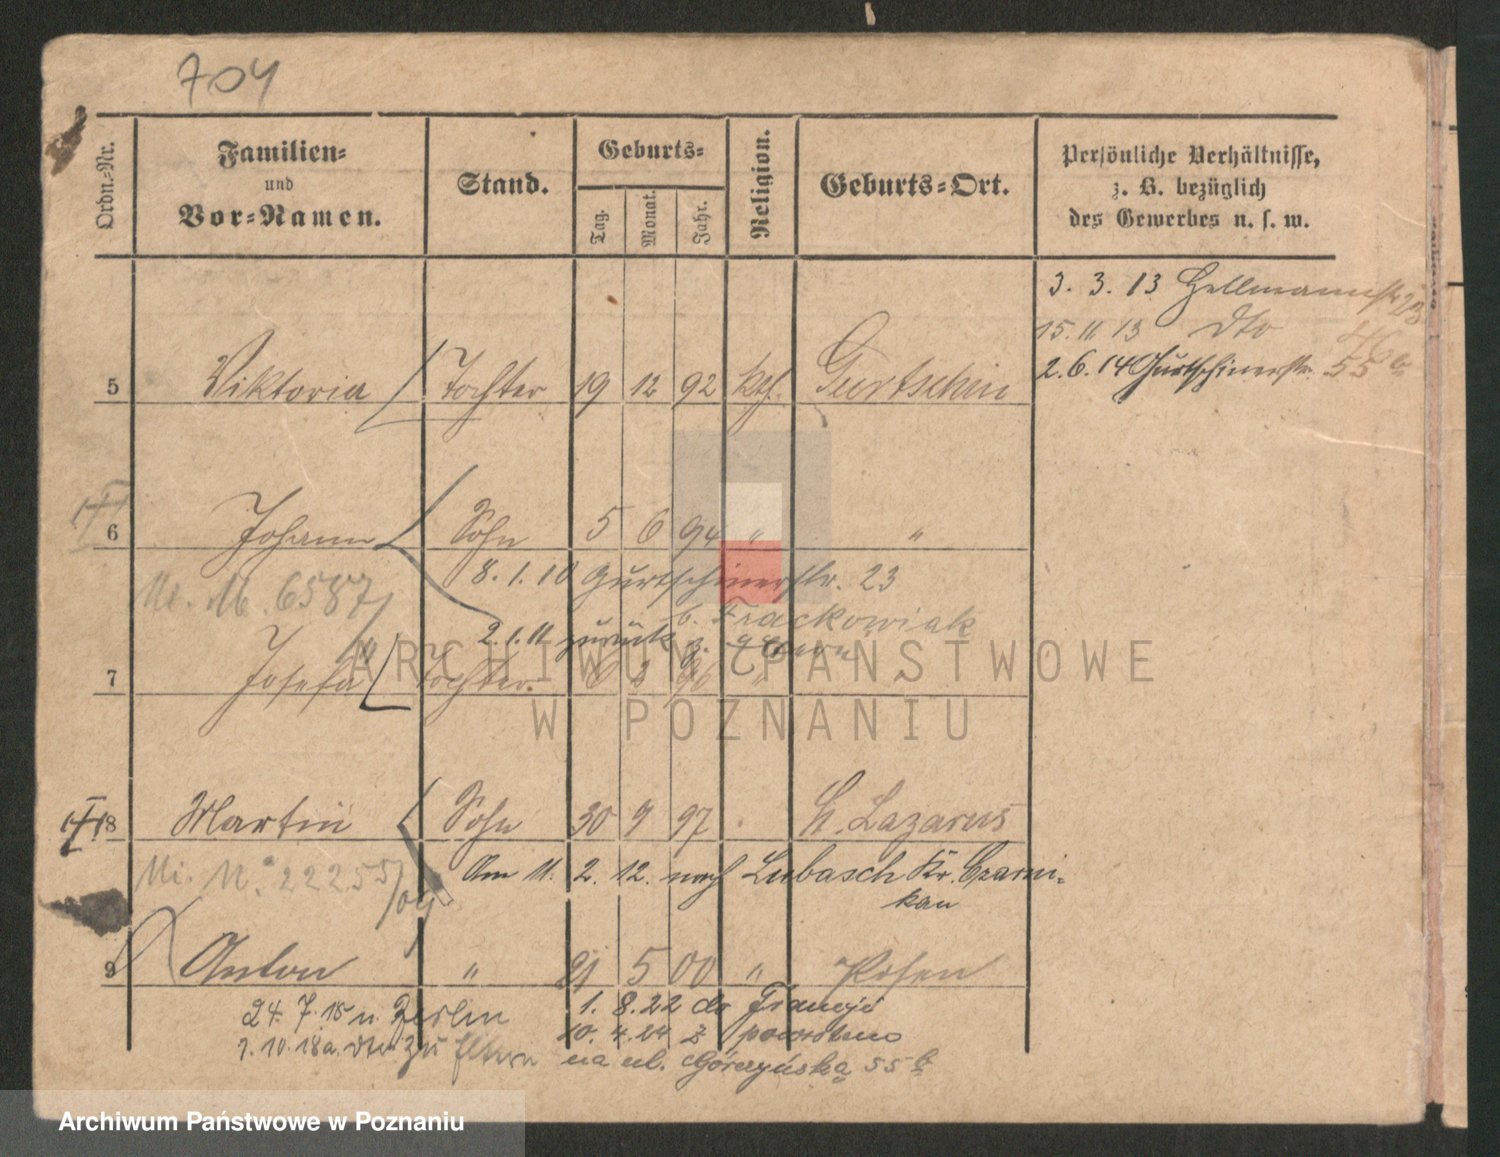 704
Ordn.-Nr.
Familien-
und
Vor-Namen.
Stand.
Geburts-
Tag.
Monat.
Jahr.
Religion.
Geburts-Ort.
Persönliche Verhältnisse,
z. B. bezüglich
des Gewerbes u. s. w.
3. 3. 13 Hellmannstr
15. 11 13 dto
2. 6. 14 Gurtschinerstr. 55
5 Viktoria Tochter 19 12 92 kth. Gurtschin
6 Johann Sohn 5 6 94 " "
8. 1. 10 Gurtschinerstr. 23
b. Frackowiak
Mi. N. 6587
2. 1. 11 zurück z. Eltern
7 Josefa Tochter. 96 "
8 Martin Sohn 30 9 97 St. Lazarus
Mi. N. 22255/04
Am 11. 2. 12. nach Lubasch Kr. Czarni-
kau
9 Anton " 21 5 00 " Posen
24. 7. 18 n. Berlin
1. 8. 22 do Francji
1. 10. 18 a. dto zu Eltern
10. 4. 24 z powrotem
na ul. Górczyńska 55 b
ARCHIWUM PAŃSTWOWE
W POZNANIU
Archiwum Państwowe w Poznaniu